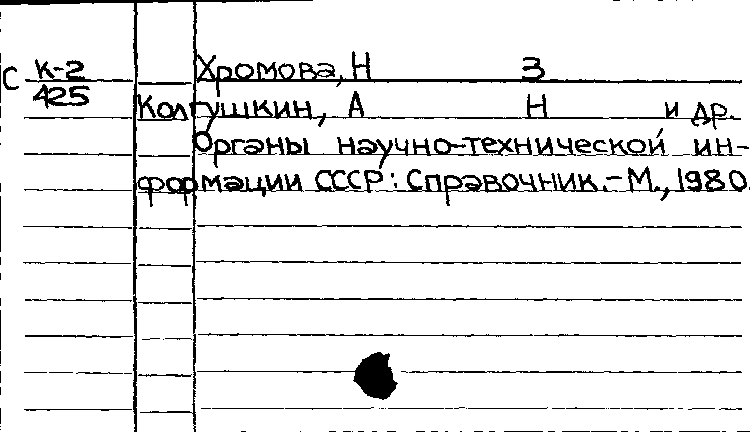 С К-2 Хромова, Н З
425 Колгушкин, А Н и др.
Органы научно-технической ин-
формации СССР: Справочник.-М., 1980.